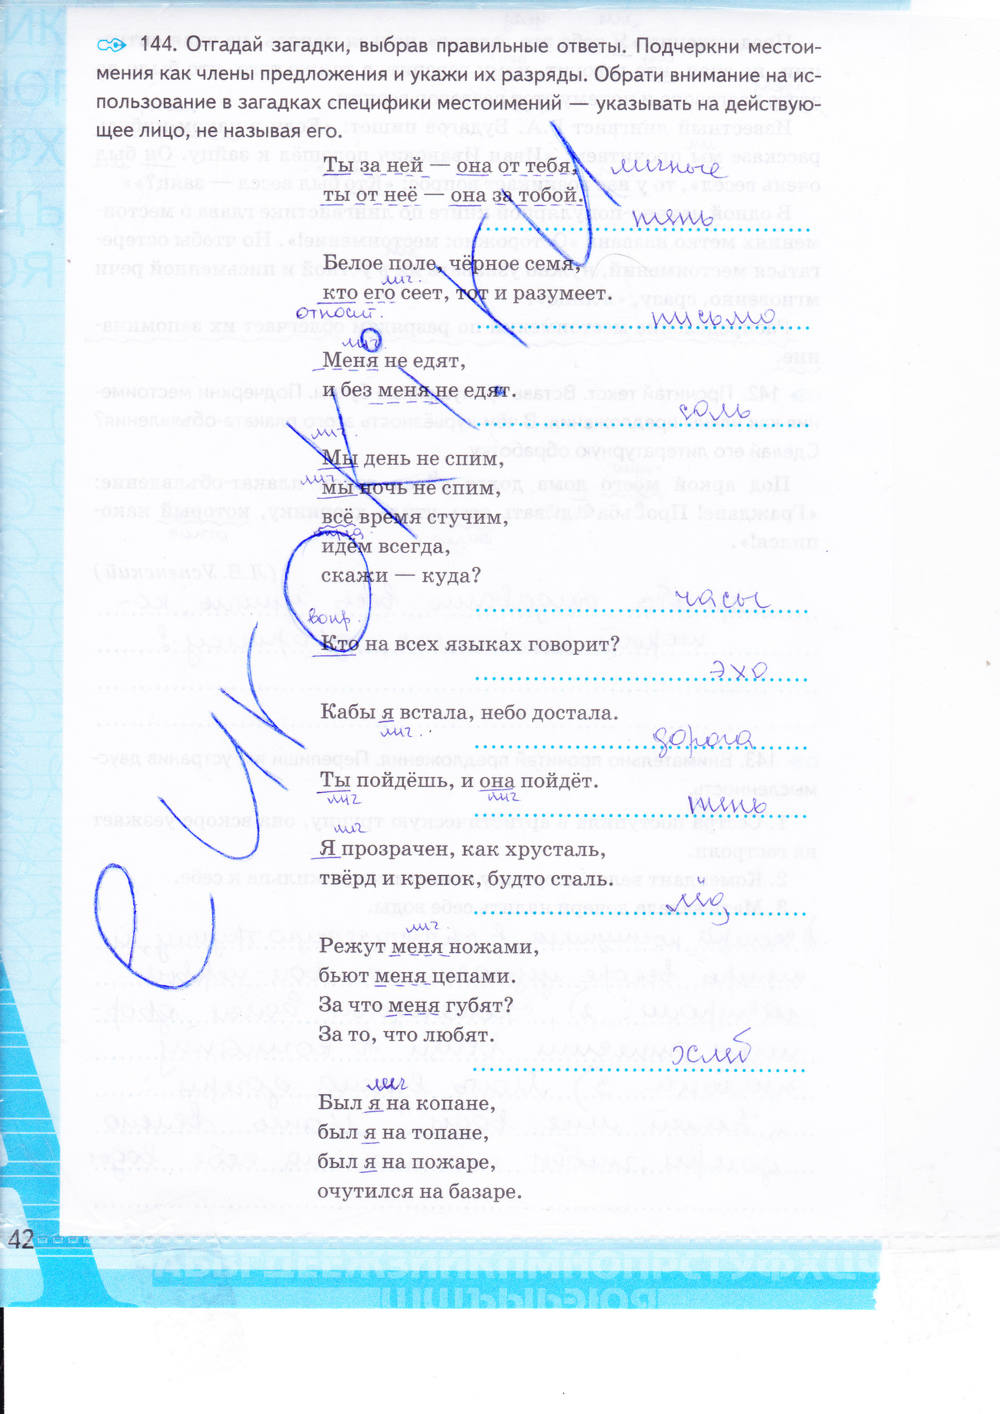 144. Отгадай загадки, выбрав правильные ответы. Подчеркни местои-
мения как члены предложения и укажи их разряды. Обрати внимание на ис-
пользование в загадках специфики местоимений — указывать на действую-
щее лицо, не называя его.
Ты за ней — она от тебя, личные
ты от неё — она за тобой.
тень
Белое поле, чёрное семя,
лич.
кто его сеет, тот и разумеет.
относит.
письмо
лич.
Меня не едят,
и без меня не едят.
соль
лич.
Мы день не спим,
лич
мы ночь не спим,
всё время стучим,
идём всегда,
скажи — куда?
часы
вопр.
Кто на всех языках говорит?
эхо
Кабы я встала, небо достала.
лич.
дорога
Ты пойдёшь, и она пойдёт.
лич лич
тень
лич
Я прозрачен, как хрусталь,
твёрд и крепок, будто сталь.
лёд
лич.
Режут меня ножами,
бьют меня цепами.
За что меня губят?
За то, что любят.
хлеб
лич
Был я на копане,
был я на топане,
был я на пожаре,
очутился на базаре.
42